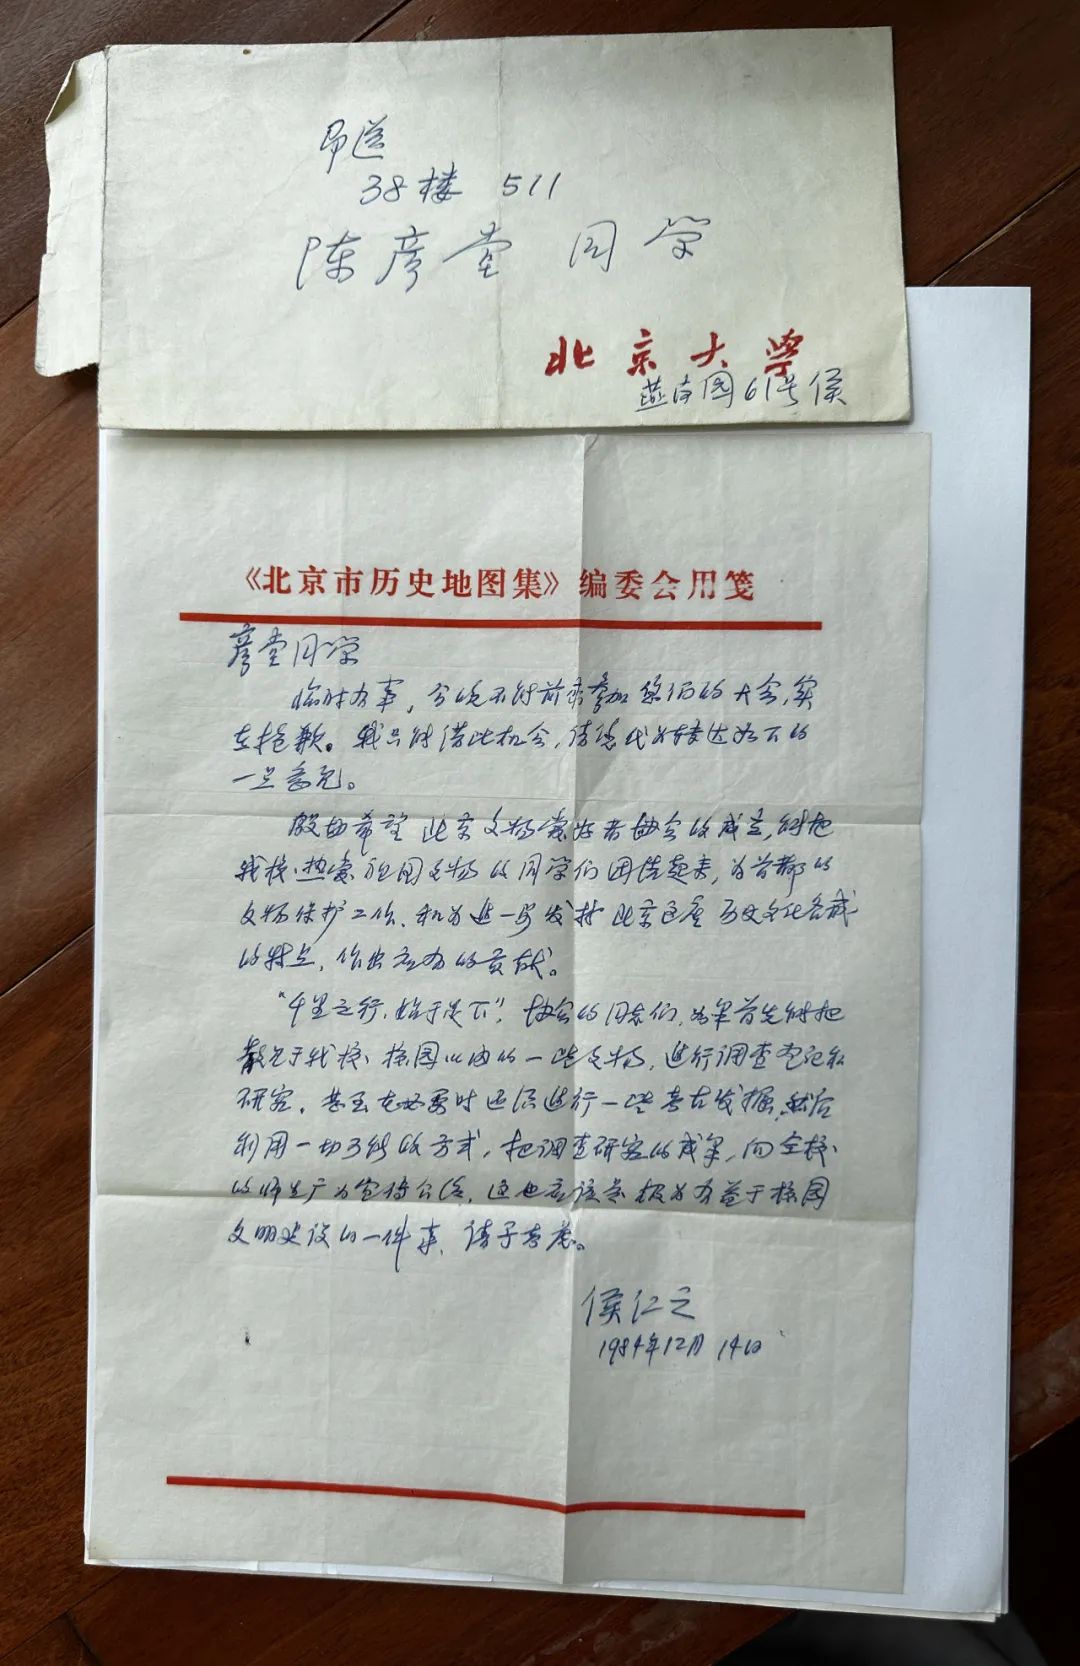 即送
38楼 511
陈彦堂 同学
北京大学
燕南园61号侯
《北京市历史地图集》编委会用笺
彦堂同学
临时有事，今晚不能前来参加你们的大会，实
在抱歉。我只能借此机会，请您代为转达如下的
一点意见。
殷切希望北京文物爱好者协会的成立，能把
我校热爱祖国文物的同学们团结起来，为首都的
文物保护工作、和为进一步发扬北京这座历史文化名城
的特点，作出应有的贡献。
“千里之行，始于足下”，协会的同志们，如果首先能把
散见于我校校园以内的一些文物，进行调查登记和
研究，甚至在必要时还须进行一些考古发掘，然后
利用一切可能的方式，把调查研究的成果，向全校
的师生广为宣传介绍，这也应该是极为有益于校园
文明建设的一件事，请予考虑。
侯仁之
1984年12月14日